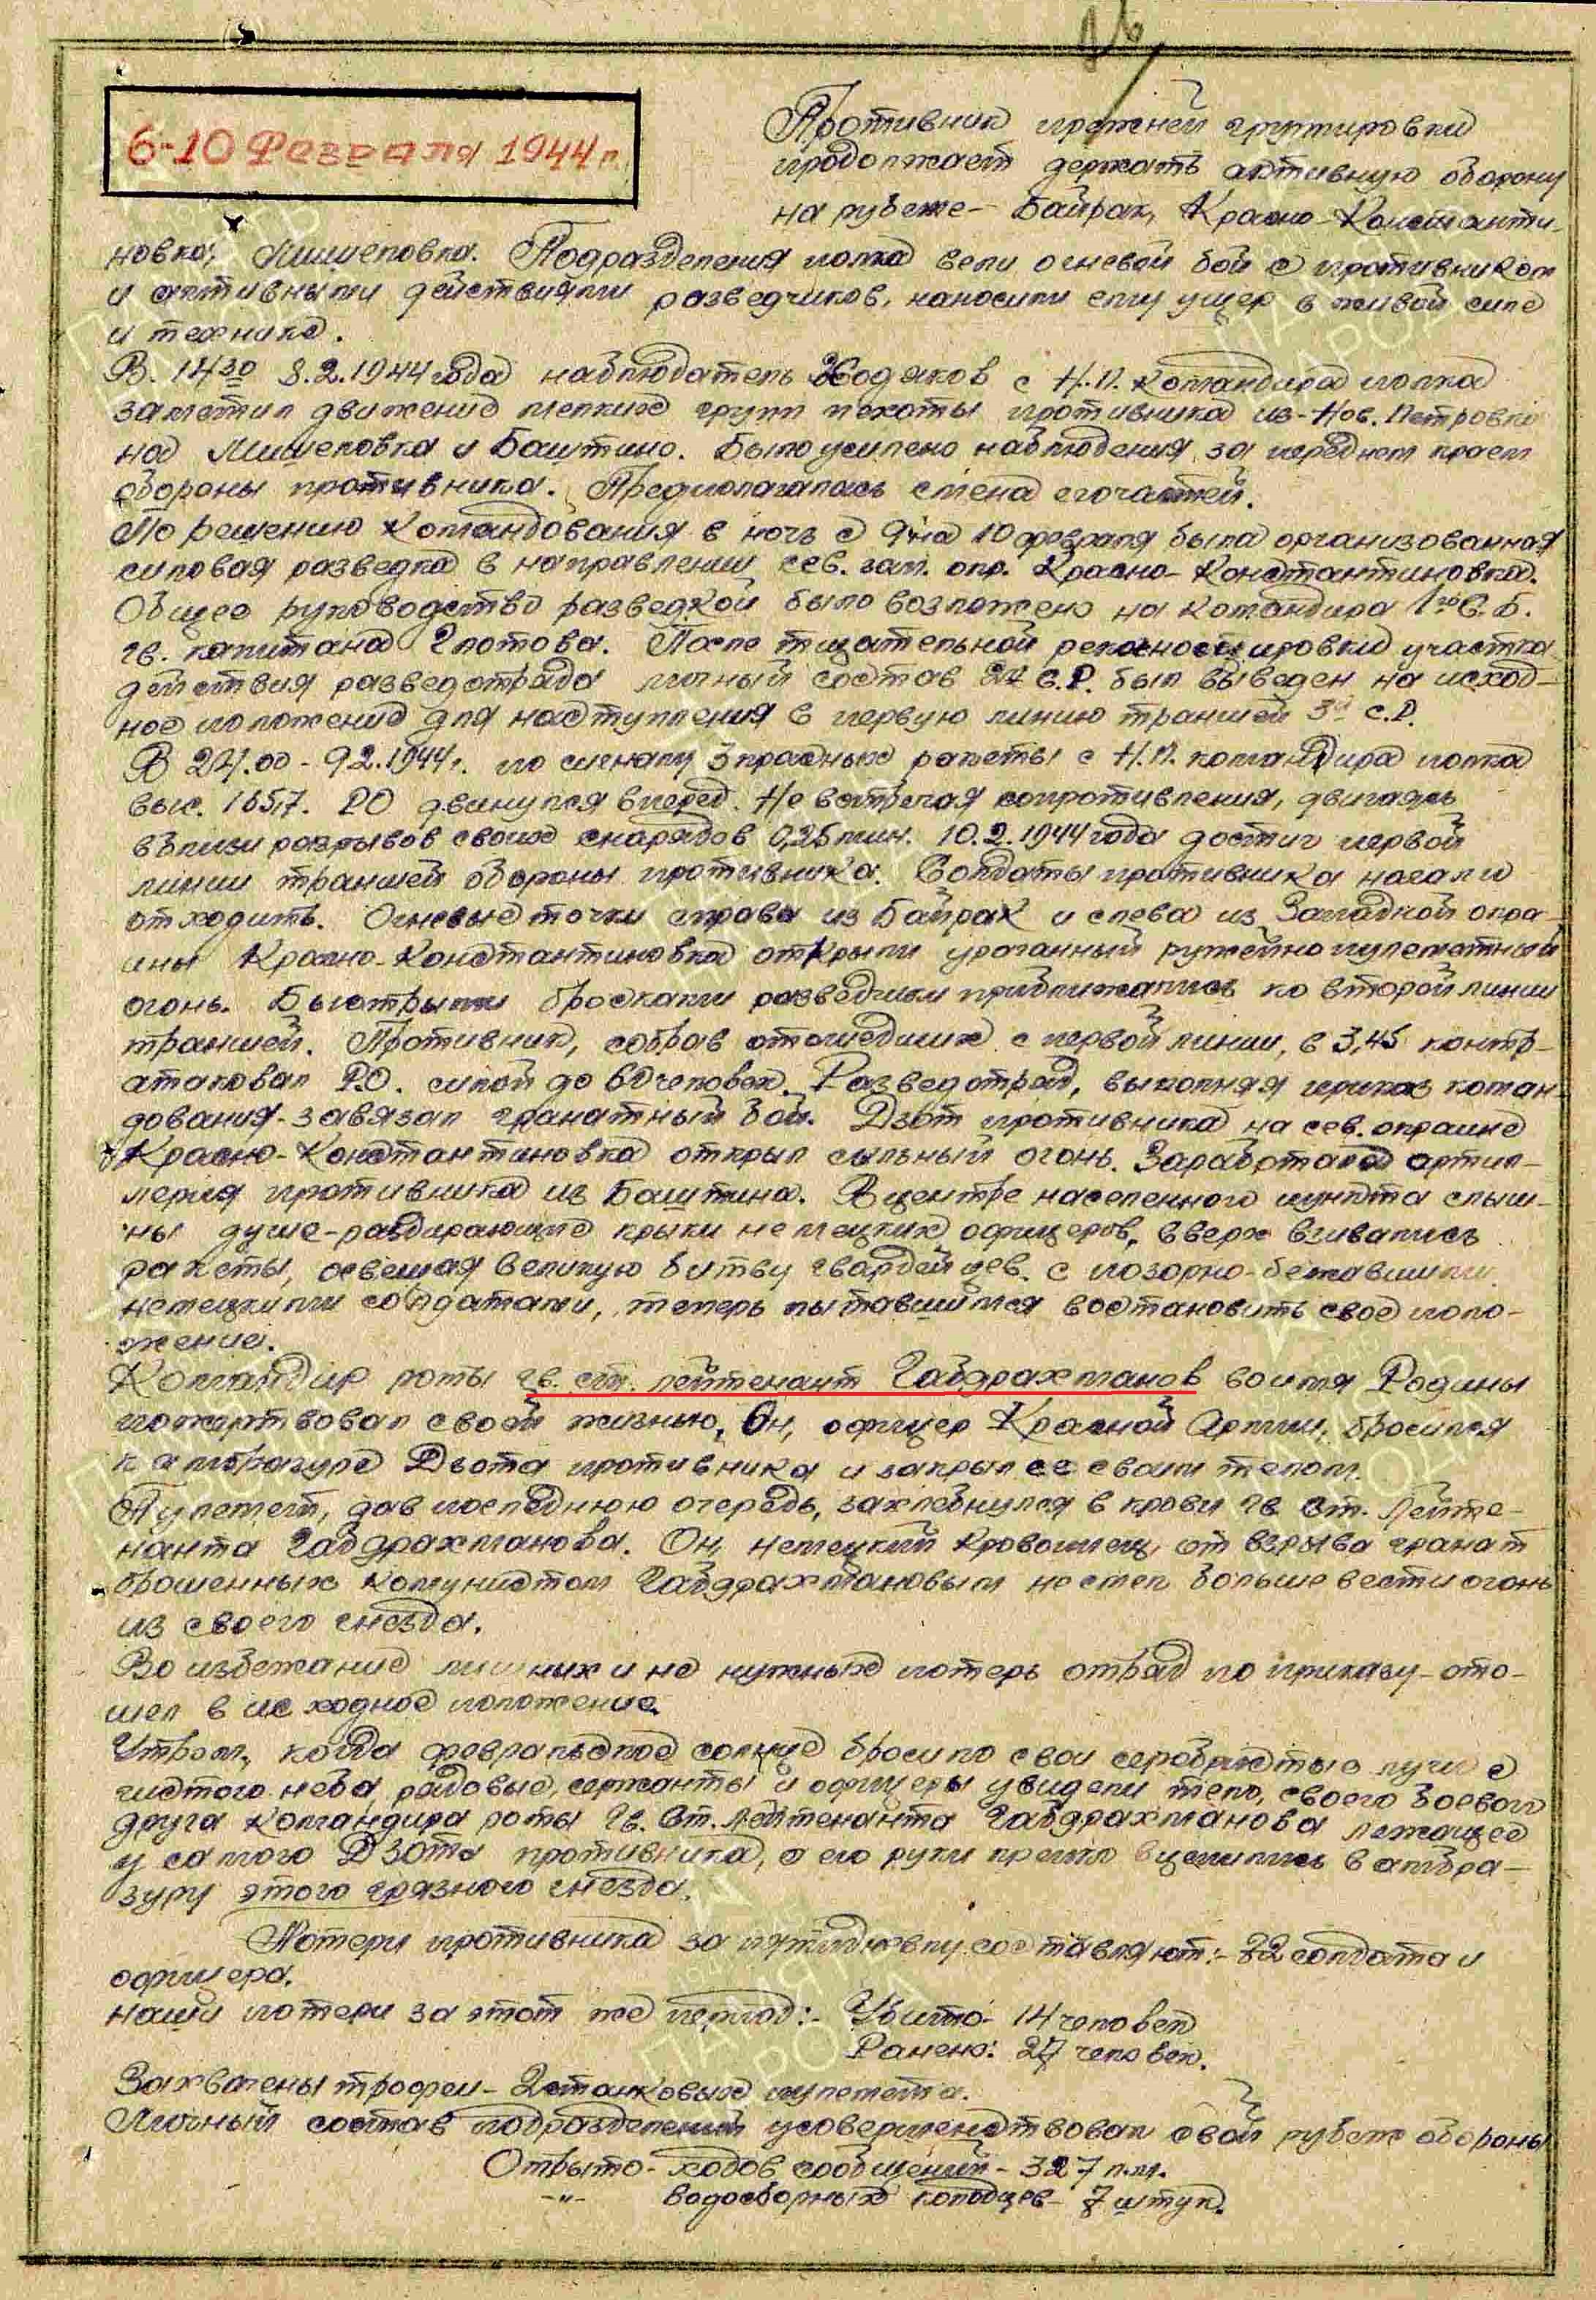 6-10 Февраля 1944 г.
Противник прежней группировки
продолжает держать активную оборону
на рубеже - Байрак, Красно-Константи-
новка, Мишеловка. Подразделения полка вели огневой бой с противником
и активными действиями разведчиков, наносили ему ущер в живой силе
и технике.
В. 14 30 8.2.1944 года наблюдатель Ходяков с Н.П. командира полка
заметил движение мелких групп пехоты противника из-Нов. Петровка
на Мишеловка и Баштино. Было усилено наблюдения за передним краем
обороны противника. Предполагалась смена его частей.
По решению Командования в ночь с 9 на 10 февраля была организованная
силовая разведка в направлении сев. зап. окр. Красно-Константиновка.
Общее руководство разведкой было возложено на командира 1го С.Б.
гв. капитана Глотова. После тщательной рекогносцировки участка
действия разведотряда личный состав С.Р. был выведен на исход-
ное положение для наступления в первую линию траншей 3й с.р.
В 24.00 - 9.2.1944г. по сигналу 3 красных ракеты с Н.П. командира полка
выс. 165,7. РО двинулся вперед. Не встречая сопротивления, двигаясь
вблизи разрывов своих снарядов 0,25 мин. 10.2.1944 года достиг первой
линии траншей обороны противника. Солдаты противника начали
отходить. Огневые точки справа из Байрак и слева из Западной окра-
ины Красно-Константиновка открыли ураганный ружейно пулеметный
огонь. Быстрыми бросками разведчики приближались ко второй линии
траншей. Противник, собрав отошедших с первой линии, в 3,45 контр-
атаковал Р.О. силой до 60 человек. Разведотряд, выполняя приказ коман-
дования-завязал гранатный бой. Дзот противника на сев. окраине
Красно-Константиновка открыл сильный огонь. Заработала артил-
лерия противника из Баштина. В центре населенного пункта слыш-
ны душе-раздирающие крики немецких офицеров, вверх взвивались
ракеты, освещая великую битву гвардейцев с позорно-бежавшими
немецкими солдатами, теперь пытавшимся востановить свое поло-
жение.
Командир роты гв. ст. лейтенант Габдрахманов во имя Родины
пожертвовал своей жизнью, Он, офицер Красной Армии, бросился
к амбразуре Дзота противника и закрыл ее своим телом.
Пулемет, дав последнюю очередь, захлебнулся в крови гв. Ст. Лейте-
нанта Габдрахманова. Он, немецкий кровопиец, от взрыва гранат
брошенных комунистом Габдрахмановым не смел больше вести огонь
из своего гнезда.
Во избежание лишних и не нужных потерь отряд по приказу-ото-
шел в исходное положение.
Утром, когда февральское солнце бросило свои серебристые лучи с
чистого неба, рядовые, сержанты и офицеры увидели тело, своего боевого
друга командира роты Гв. Ст. Лейтенанта Габдрахманова лежащее
у самого Дзота противника, а его руки крепко вцепились в амбра-
зуру этого грязного гнезда.
Потери противника за пятидневку составляют:- 72 солдата и
офицера.
Наши потери за этот же период:- Убито- 14 человек
Ранено: 27 человек.
Захвачены трофеи- 2 станковых пулемета.
Личный состав подразделений усовершенствовал свой рубеж обороны
Отрыто- ходов сообщений- 327 п.м.
-"- водосборных колодцев- 7 штук.